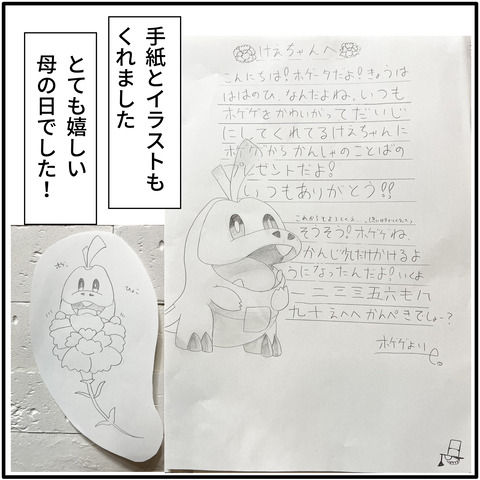 手紙とイラストも
くれました
とても嬉しい
母の日でした！
けえちゃんへ
こんにちは！ホゲータだよ！きょうは
ははのひ、なんだよね。いつも
ホゲゲをかわいがってだいじ
にしてくれてるけえちゃんに
ホゲゲからかんしゃのことばの
レゼントだよ！
いつもありがとう!!
そうそう！ホゲゲね、
かんじ九だけかけるよ
うになったんだよ！いくよ
一二三三五六七八
九十えへへかんぺきでしょー？
ホゲゲより
ホゲ
ひょこ